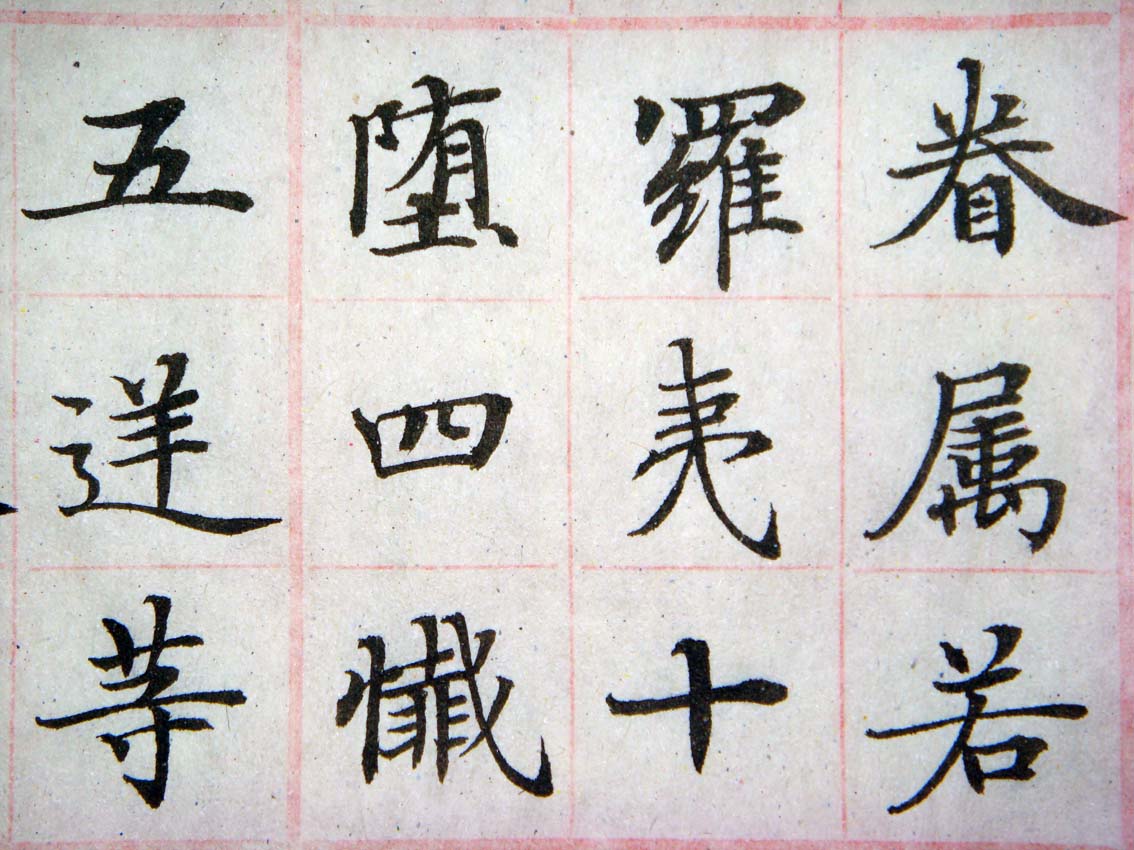 眷属若
羅夷十
堕四懺
五逆等